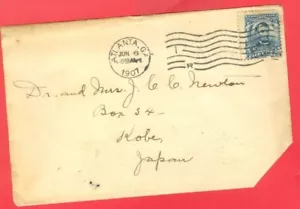 ATLANTA, GA.
JUN 6
1901
Dr. and Mrs. J. C. C. Newton
Box 34
Kobe,
Japan